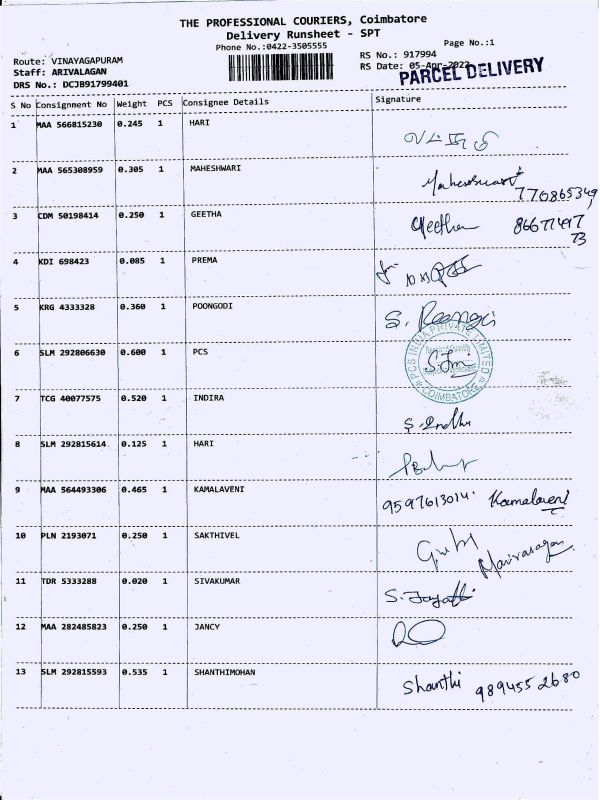 THE PROFESSIONAL COURIERS, Coimbatore
Delivery Runsheet - SPT
Phone No.:0422-3505555
Page No.:1
Route: VINAYAGAPURAM
RS No.: 917994
Staff: ARIVALAGAN
RS Date: 05-Apr-2022
DRS No.: DCJB91799401
PARCEL DELIVERY
S No Consignment No Weight PCS Consignee Details Signature
1 MAA 566815230 0.245 1 HARI
2 MAA 565308959 0.305 1 MAHESHWARI Maheshwari
770865349
3 CDM 50198414 0.250 1 GEETHA Geetha
4 KDI 698423 0.085 1 PREMA
5 KRG 4333328 0.360 1 POONGODI
6 SLM 292806630 0.600 1 PCS
PCS INDIA PRIVATE LIMITED
COIMBATORE
7 TCG 40077575 0.520 1 INDIRA
8 SLM 292815614 0.125 1 HARI
9 MAA 564493306 0.465 1 KAMALAVENI 9597613014. Kamalaveni
10 PLN 2193071 0.250 1 SAKTHIVEL
11 TDR 5333288 0.020 1 SIVAKUMAR
12 MAA 282485823 0.250 1 JANCY
13 SLM 292815593 0.535 1 SHANTHIMOHAN Shanthi 9894552680